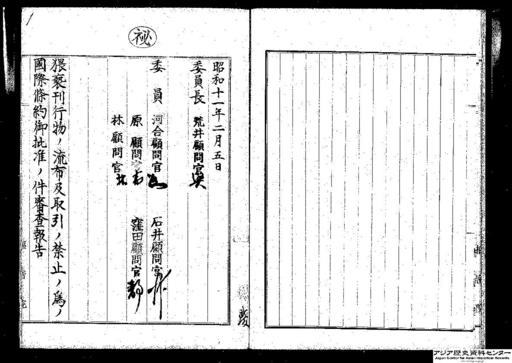 秘
昭和十一年二月五日
委員長 荒井顧問官
委員 河合顧問官 石井顧問官
原顧問官 窪田顧問官
林顧問官
猥褻刊行物ノ流布及取引ノ禁止ノ爲ノ
國際條約御批准ノ件審査報告
アジア歴史資料センター
Japan Center for Asian Historical Records